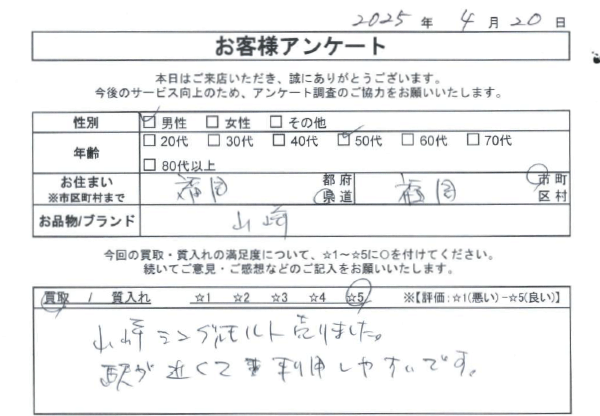 2025 年 4 月 20 日
お客様アンケート
本日はご来店いただき、誠にありがとうございます。
今後のサービス向上のため、アンケート調査のご協力をお願いいたします。
性別 ☑ 男性 □ 女性 □ その他
年齢 □ 20代 □ 30代 □ 40代 ☑ 50代 □ 60代 □ 70代
□ 80代以上
お住まい 福岡 都府 福岡 市町
※市区町村まで 県道 区村
お品物/ブランド 山崎
今回の買取・質入れの満足度について、☆1～☆5に○を付けてください。
続いてご意見・ご感想などのご記入をお願いいたします。
買取 / 質入れ ☆1 ☆2 ☆3 ☆4 ☆5 ※【評価：☆1(悪い)－☆5(良い)】
山崎シングルモルト売りました。
駅が近くて利用しやすいです。